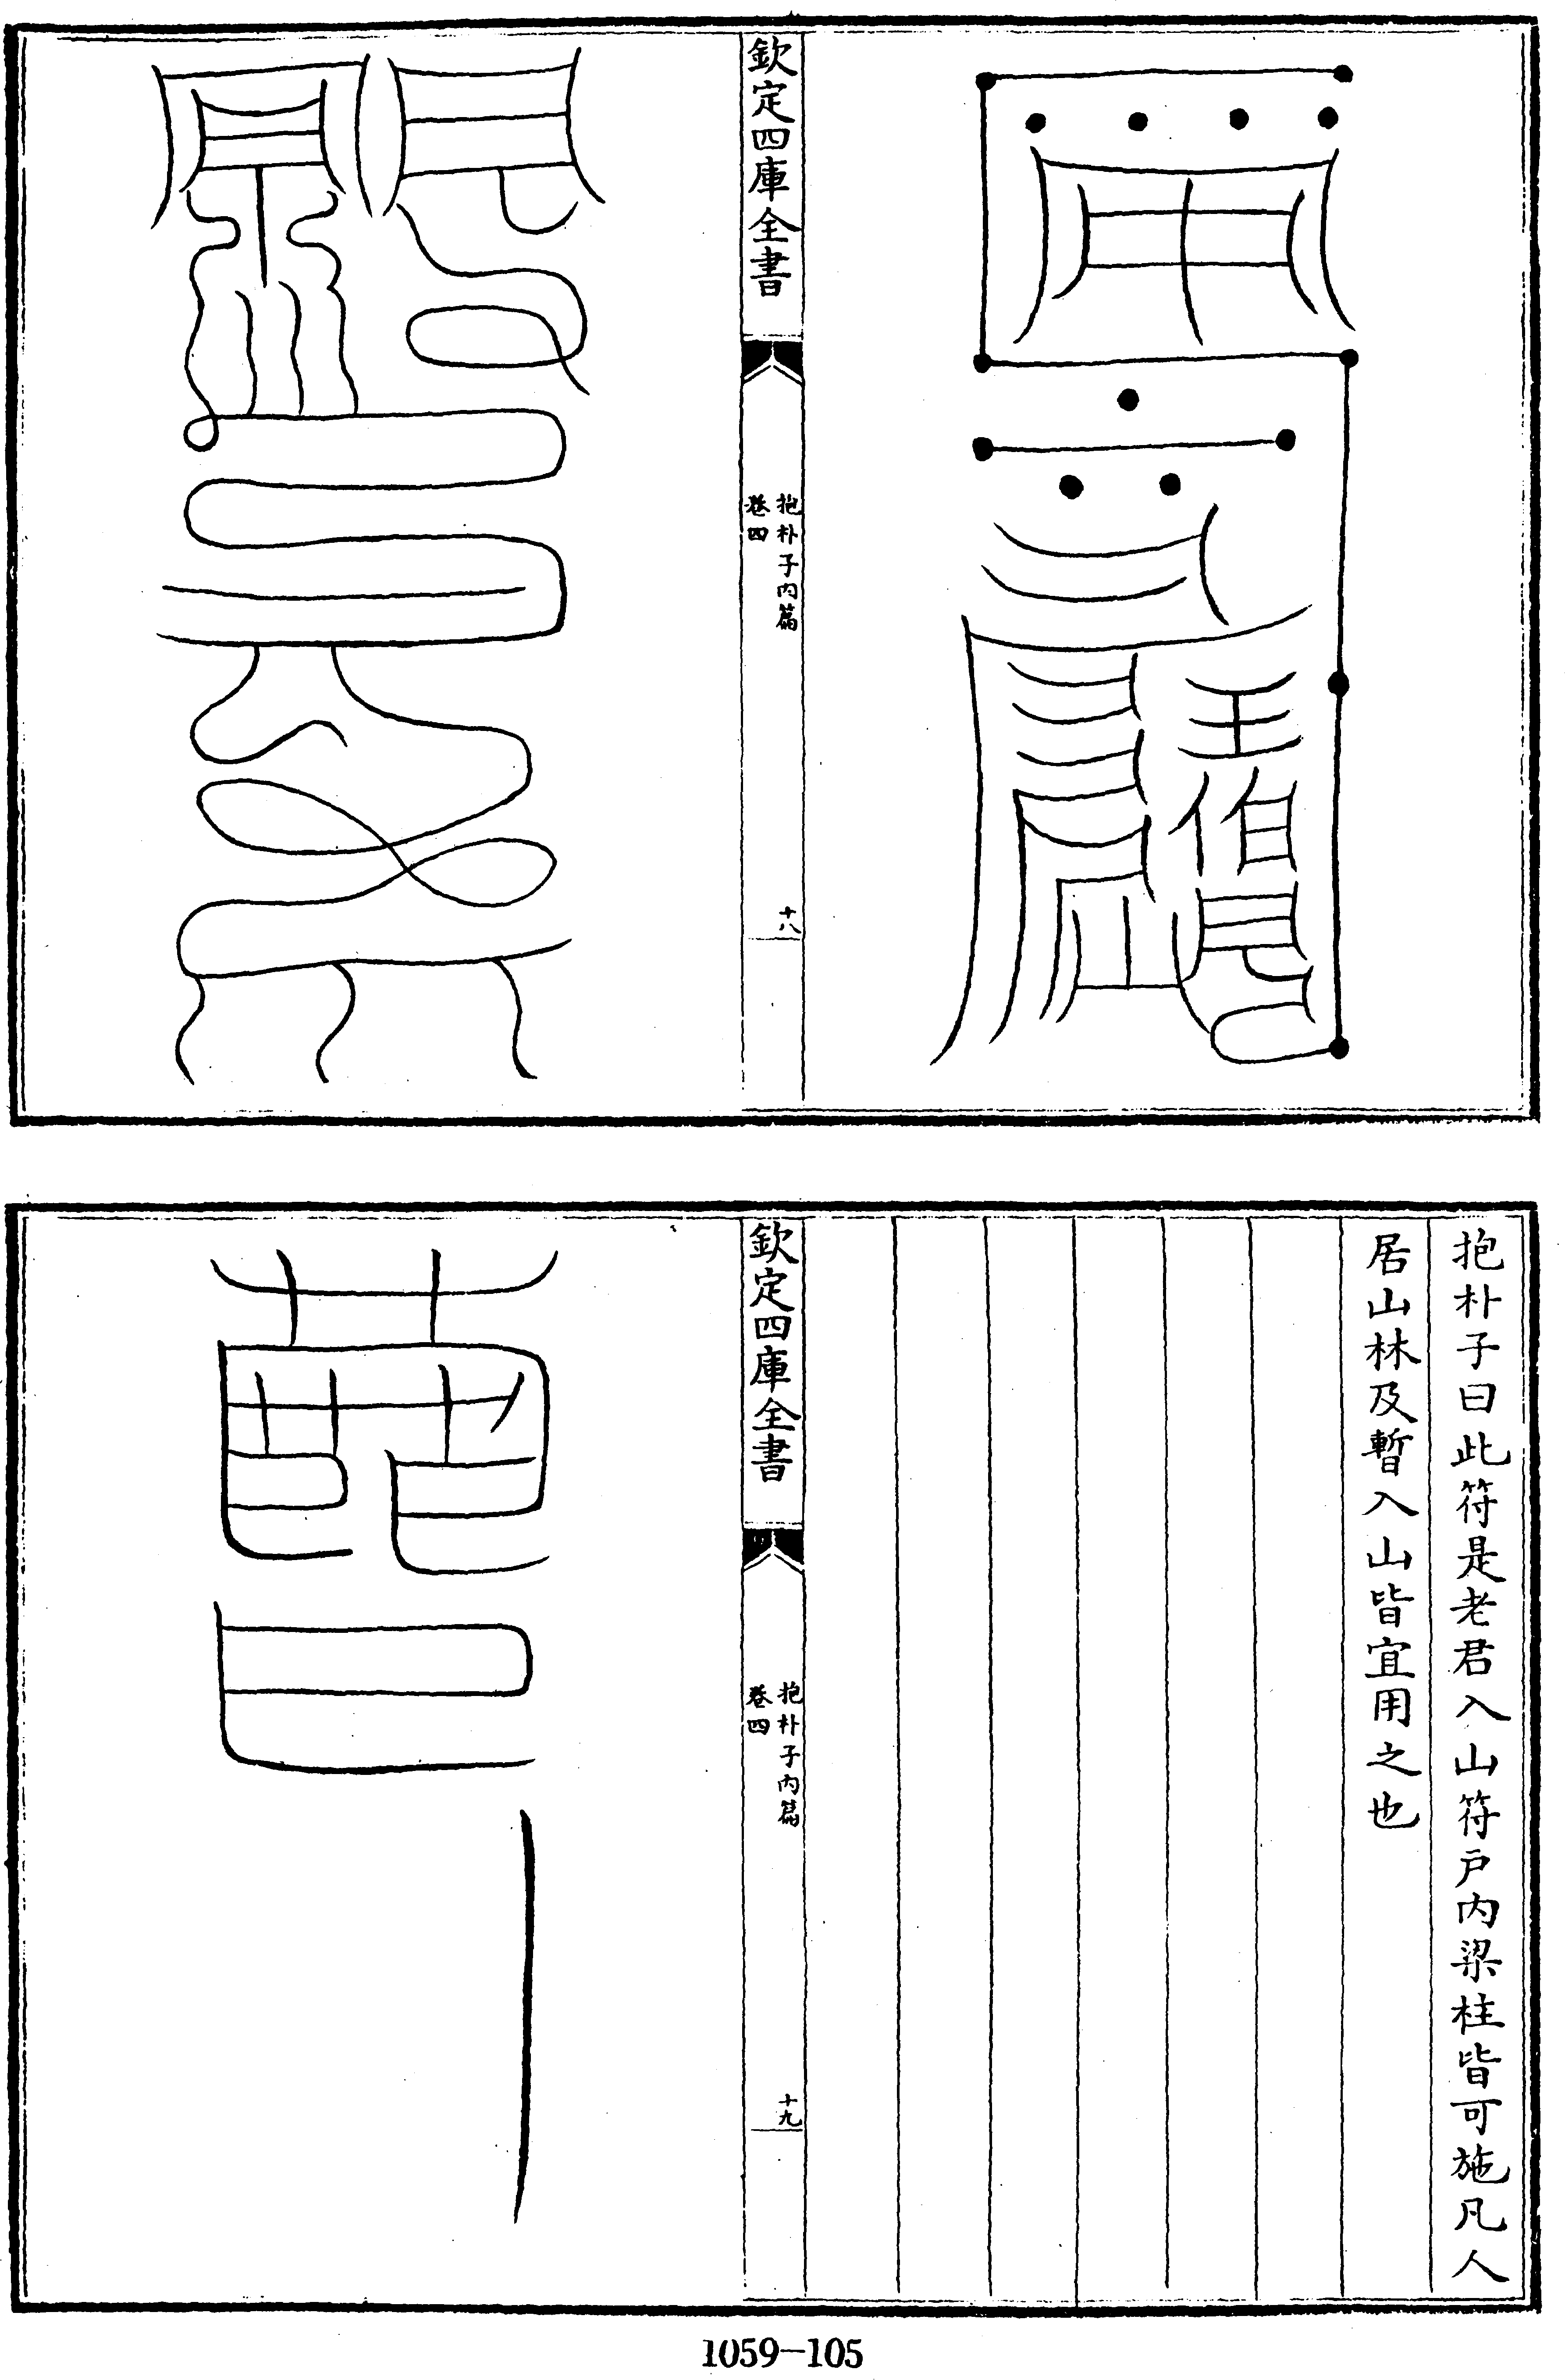 欽定四庫全書
抱朴子內篇
卷四
十八
抱朴子曰此符是老君入山符户內梁柱皆可施凡人
居山林及暫入山皆宜用之也
欽定四庫全書
抱朴子內篇
卷四
十九
1059-105